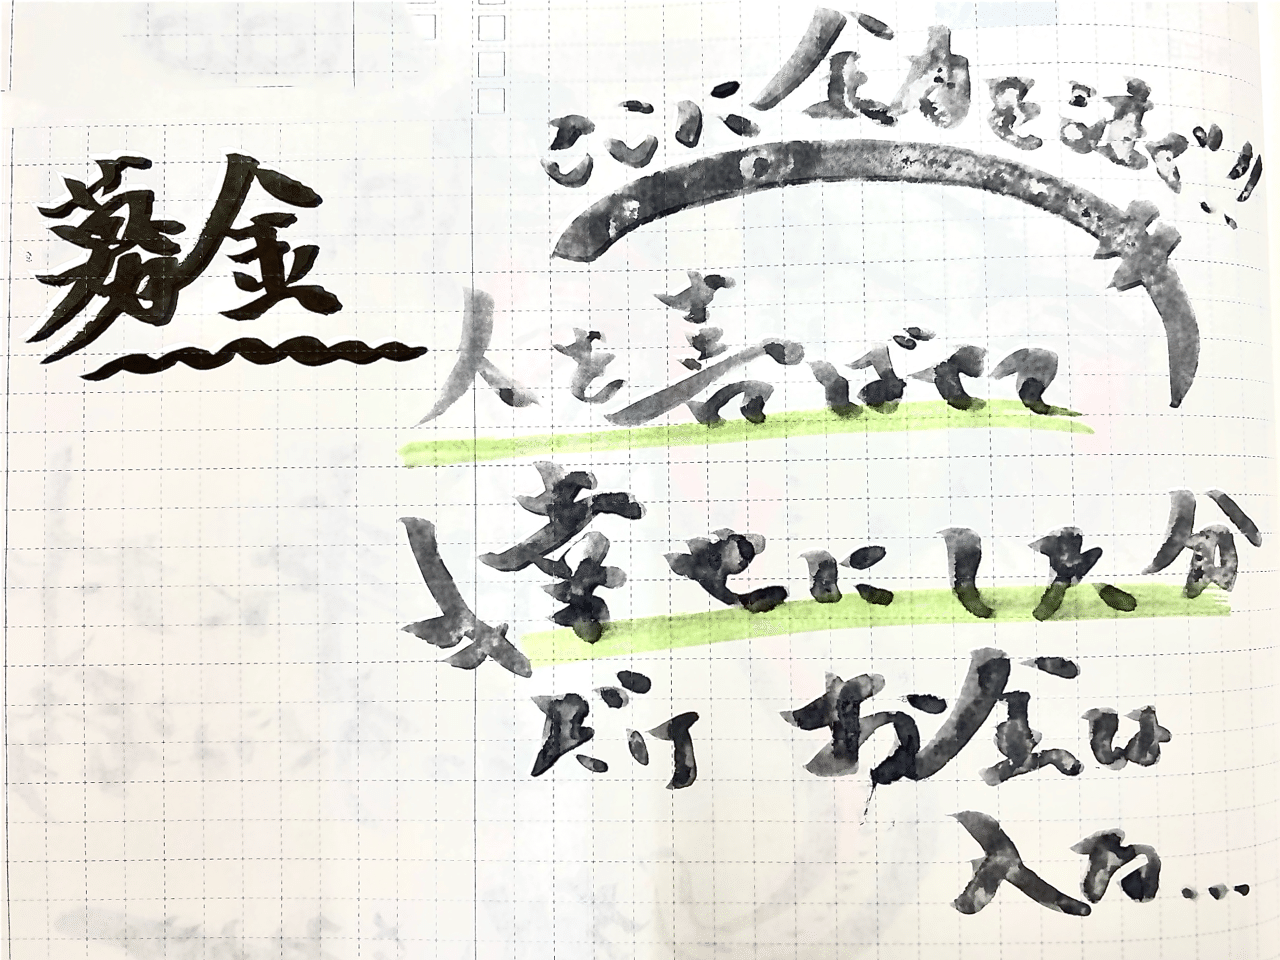 募金
ここに全力を注ぐ!!
人を喜ばせて
幸せにした分
だけ お金は
入る...